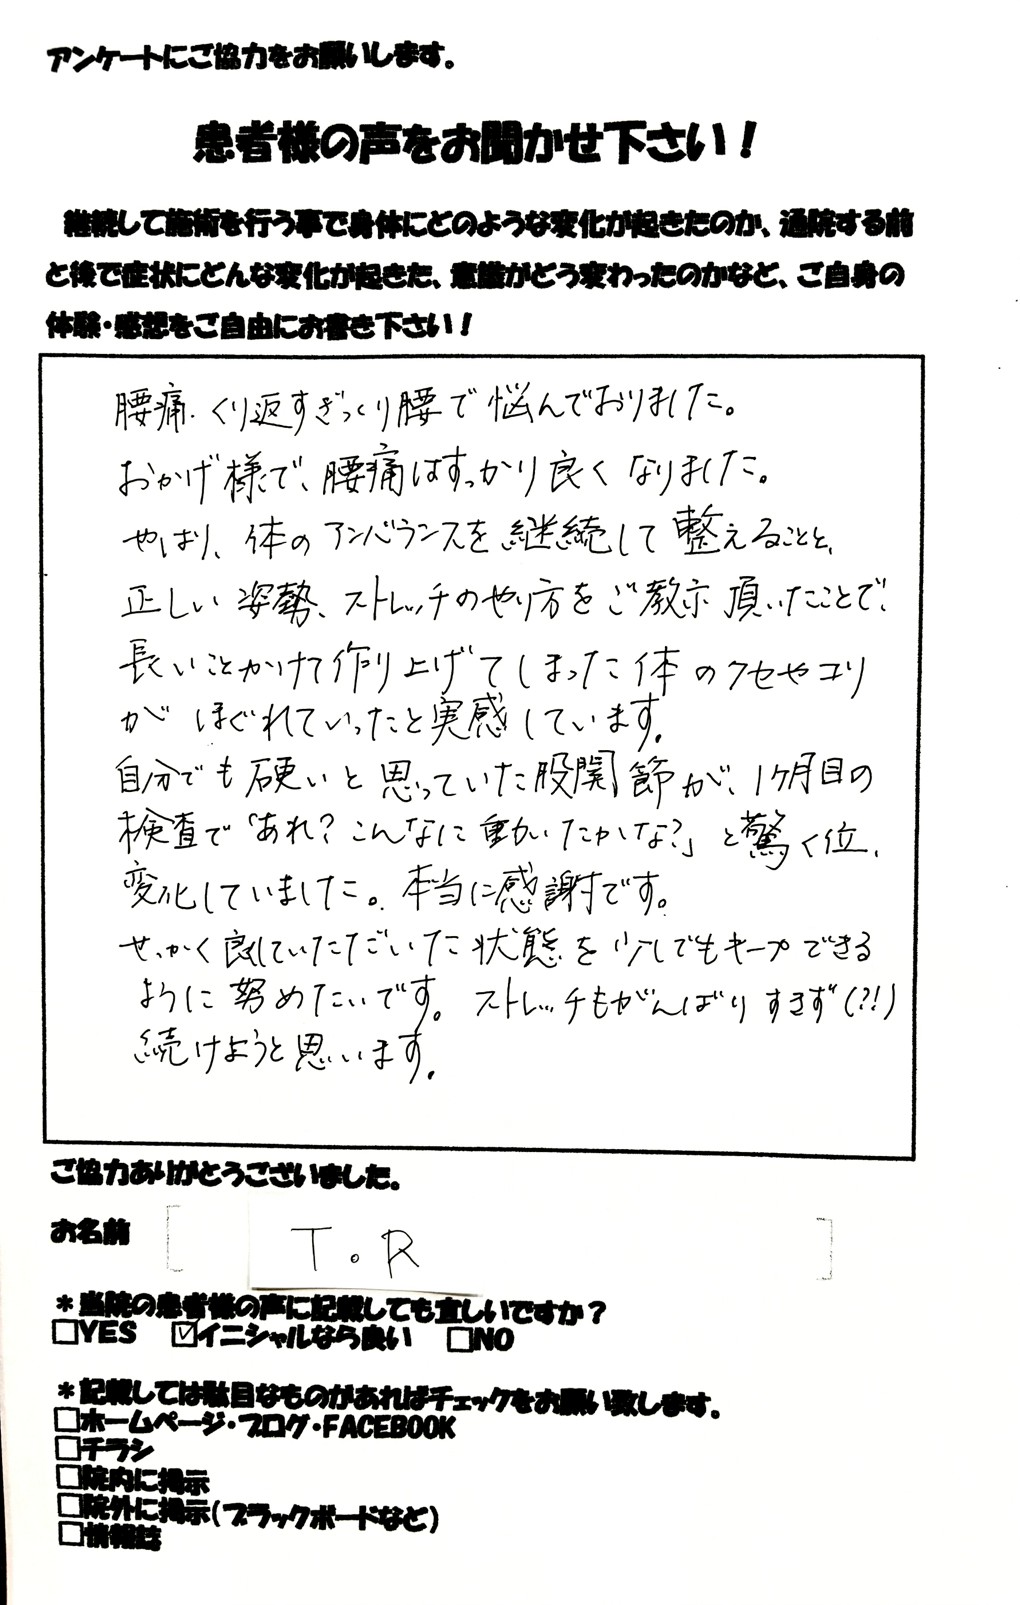 アンケートにご協力をお願いします。
患者様の声をお聞かせ下さい！
継続して施術を行う事で身体にどのような変化が起きたのか、通院する前
と後で症状にどんな変化が起きた、意識がどう変わったのかなど、ご自身の
体験・感想をご自由にお書き下さい！
腰痛、くり返すぎっくり腰で悩んでおりました。
おかげ様で、腰痛はすっかり良くなりました。
やはり、体のアンバランスを継続して整えることと、
正しい姿勢、ストレッチのやり方をご教示頂いたことで、
長いことかけて作り上げてしまった体のクセやコリ
がほぐれていったと実感しています。
自分でも硬いと思っていた股関節が、1ヶ月目の
検査で「あれ？こんなに動いたかな？」と驚く位、
変化していました。本当に感謝です。
せっかく良していただいた状態を少しでもキープできる
ように努めたいです。ストレッチもがんばりすぎず(?!)
続けようと思います。
ご協力ありがとうございました。
お名前 T.R
＊当院の患者様の声に記載しても宜しいですか？
□YES ☑イニシャルなら良い □NO
＊記載しては駄目なものがあればチェックをお願い致します。
□ホームページ・ブログ・FACEBOOK
□チラシ
□院内に掲示
□院外に掲示（ブラックボードなど）
□情報誌